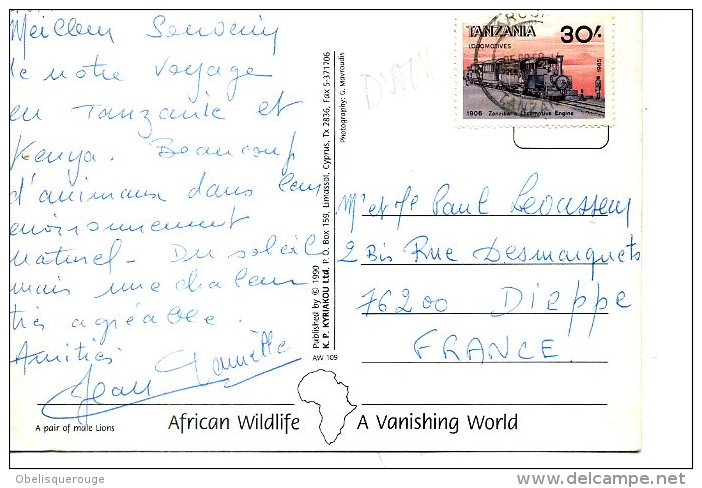 Meilleur Souvenir
de notre voyage
en Tanzanie et
Kenya. Beaucoup
d'animaux dans leur
environnement
naturel - Du soleil
mais une chaleur
très agréable.
Amitiés
Jean
A pair of male Lions
African Wildlife
A Vanishing World
Published by © 1990
K. P. KYRIAKOU Ltd. P. O. Box 159, Limassol, Cyprus, Tx 2836, Fax 5-371706
Photography: G. Mavroudis
AW 109
TANZANIA
30/-
LOCOMOTIVES
1985
1906 Zanzibar's Locomotive Engine
Mr et Me Paul Levasseur
2 Bis Rue Desmarquets
76200 DIEPPE
FRANCE.
Obelisquerouge
www.delcampe.net